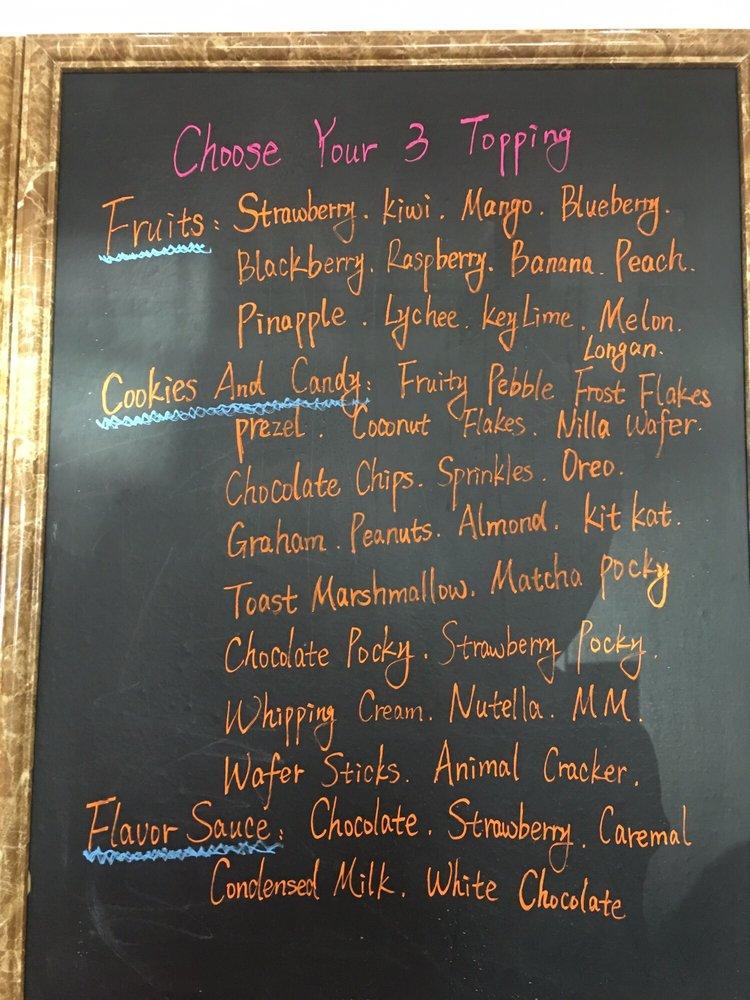 Choose Your 3 Topping
Fruits: Strawberry. kiwi. Mango. Blueberry.
Blackberry. Raspberry. Banana. Peach.
Pinapple. Lychee. keyLime. Melon.
Longan.
Cookies And Candy: Fruity Pebble Frost Flakes
prezel. Coconut Flakes. Nilla Wafer.
Chocolate Chips. Sprinkles. Oreo.
Graham. Peanuts. Almond. kit kat.
Toast Marshmallow. Matcha pocky
Chocolate Pocky. Strawberry Pocky.
Whipping Cream. Nutella. MM.
Wafer Sticks. Animal Cracker.
Flavor Sauce: Chocolate. Strawberry. Caremal
Condensed Milk. White Chocolate